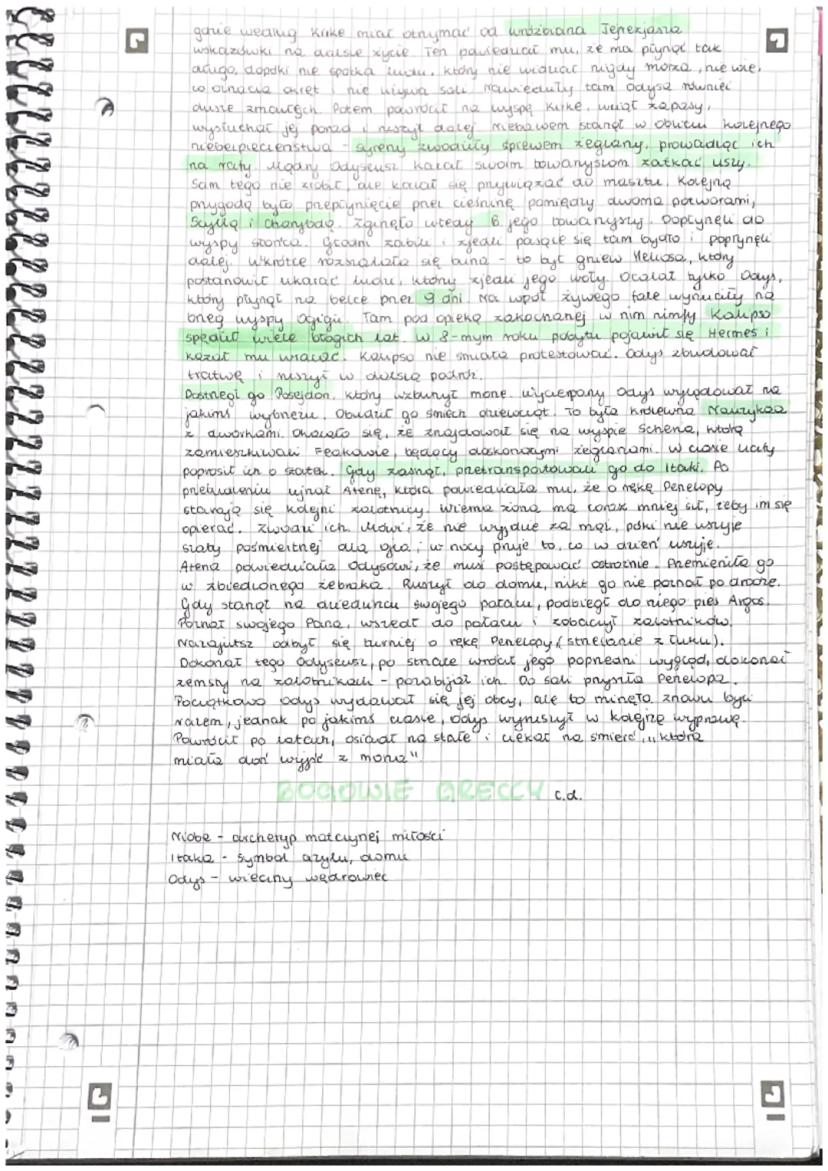 gdzie według Kirke miał otrzymać od widziana Tejrezjasza
wskazówki na dalsze życie Ten powiedział mu, że ma płynąć tak
długo, dopóki nie spotka ludu, który nie widział nigdy morza, nie wie,
co oznacza okręt i nie używa soli Nawiedziły tam Odysa również
dusze zmarłych Potem powrócił na wyspę Kirke, wziął zapasy,
wysłuchał jej porad i ruszył dalej Niebawem stanął w obliczu kolejnego
niebezpieczeństwa - syreny zwodziły śpiewem żeglarzy, prowadząc ich
na rafy. Mądry Odyseusz kazał swoim towarzyszom zatkać uszy.
Sam tego nie zrobił, ale kazał się przywiązać do masztu. Kolejną
przygodą było przepłynięcie przez cieśninę pomiędzy dwoma potworami,
Scyllą i Charybdą. Zginęło wtedy 6 jego towarzyszy. Dopłynęli do
wyspy słońca. Głodni zabili i zjedli pasące się tam bydło i popłynęli
dalej. Wkrótce rozszalała się burza - to był gniew Heliosa, który
postanowił ukarać ludzi, którzy zjedli jego woły. Ocalał tylko Odys,
który płynął na belce przez 9 dni. Na wpół żywego fale wyrzuciły na
brzeg wyspy Ogigii. Tam pod opieką zakochanej w nim nimfy Kalipso
spędził wiele błogich lat. W 8-mym roku pobytu pojawił się Hermes i
kazał mu wracać. Kalipso nie śmiała protestować. Odys zbudował
tratwę i ruszył w dalszą podróż.
Dostrzegł go Posejdon, który wzburzył morze. Wyczerpany Odys wylądował na
jakimś wybrzeżu. Obudził go śmiech dziewcząt. To była królewna Nauzykaa
z dwórkami. Okazało się, że znajdował się na wyspie Scheria, którą
zamieszkiwali Feakowie, będący doskonałymi żeglarzami. W czasie uczty
poprosił ich o statek. Gdy zasnął, przetransportowali go do Itaki. Po
przebudzeniu ujrzał Atenę, która powiedziała mu, że o rękę Penelopy
starają się kolejni zalotnicy. Wierna żona ma coraz mniej sił, żeby im się
opierać. Zwodzi ich. Mówi, że nie wyjdzie za mąż, póki nie uszyje
szaty pośmiertnej dla ojca i w nocy pruje to, co w dzień uszyje.
Atena powiedziała Odysowi, że musi postępować ostrożnie. Przemieniła go
w zbiedzonego żebraka. Ruszył do domu, nikt go nie poznał po drodze.
Gdy stanął na dziedzińcu swojego pałacu, podbiegł do niego pies Argos.
Poznał swojego Pana, wszedł do pałacu i zobaczył zalotników.
Nazajutrz odbył się turniej o rękę Penelopy (strzelanie z łuku).
Dokonał tego Odyseusz, po strzale wrócił jego poprzedni wygląd, dokonał
zemsty na zalotnikach - pozabijał ich. Do sali przyszła Penelopa.
Początkowo Odys wydawał się jej obcy, ale to minęło znowu byli
razem, jednak po jakimś czasie, Odys wyruszył w kolejną wyprawę.
Powrócił po latach, osiadł na stałe i czekał na śmierć ,,która
miała doń wyjść z morza"
BOGOWIE GRECCY c.d.
Niobe - archetyp matczynej miłości
Itaka - symbol azylu, domu
Odys - wieczny wędrowiec